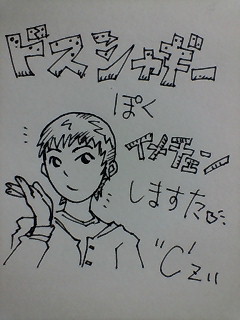 ドスジャギィ
ぽく
イメチェン
しますた
"C'z"